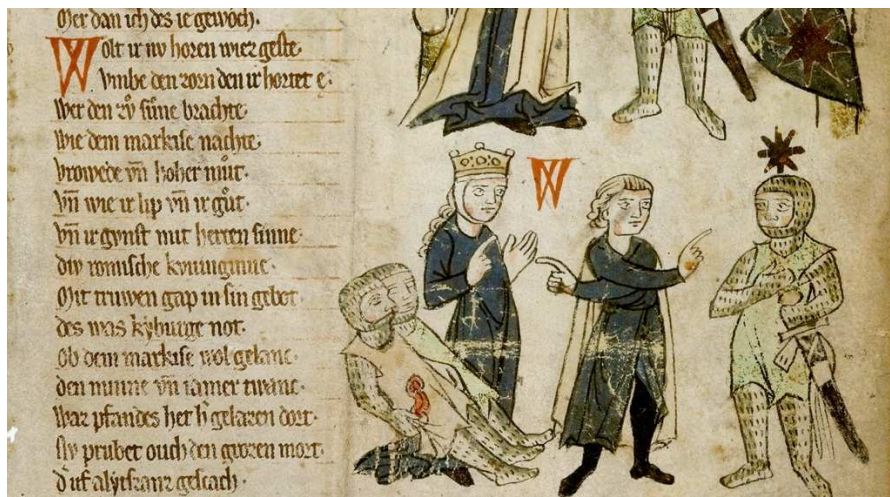 Mer dan ich des ie gewoch·
Wolt ir nv horen wiez geste
Vmbe den zorn den ir hortet e·
Wer den zů sůne brachte·
wie dem markise nachte·
vrowede vn̄ hoher můt·
Vn̄ wie ir lip vn̄ ir gůt·
Vn̄ ir gvnst mit herzen sinne·
div romische kvniginne·
Mit truwen gap in sin gebot·
des was kyburge not·
Ob dem markise wol gelanc·
den minne vn̄ iamer twanc·
War pfandes het h̄ gelazen dort·
siv prubet ouch den grozen mort·
d̄ uf alytschanz geschach·
W